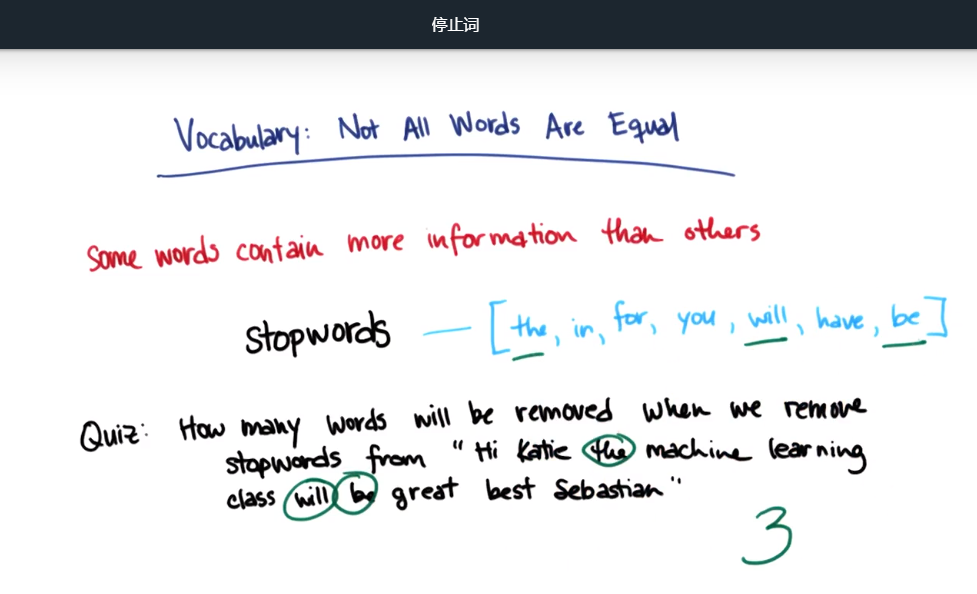 停止词
Vocabulary: Not All Words Are Equal
Some words contain more information than others
stopwords — [the, in, for, you, will, have, be]
Quiz: How many words will be removed when we remove
stopwords from "Hi Katie the machine learning
class will be great best Sebastian"
3